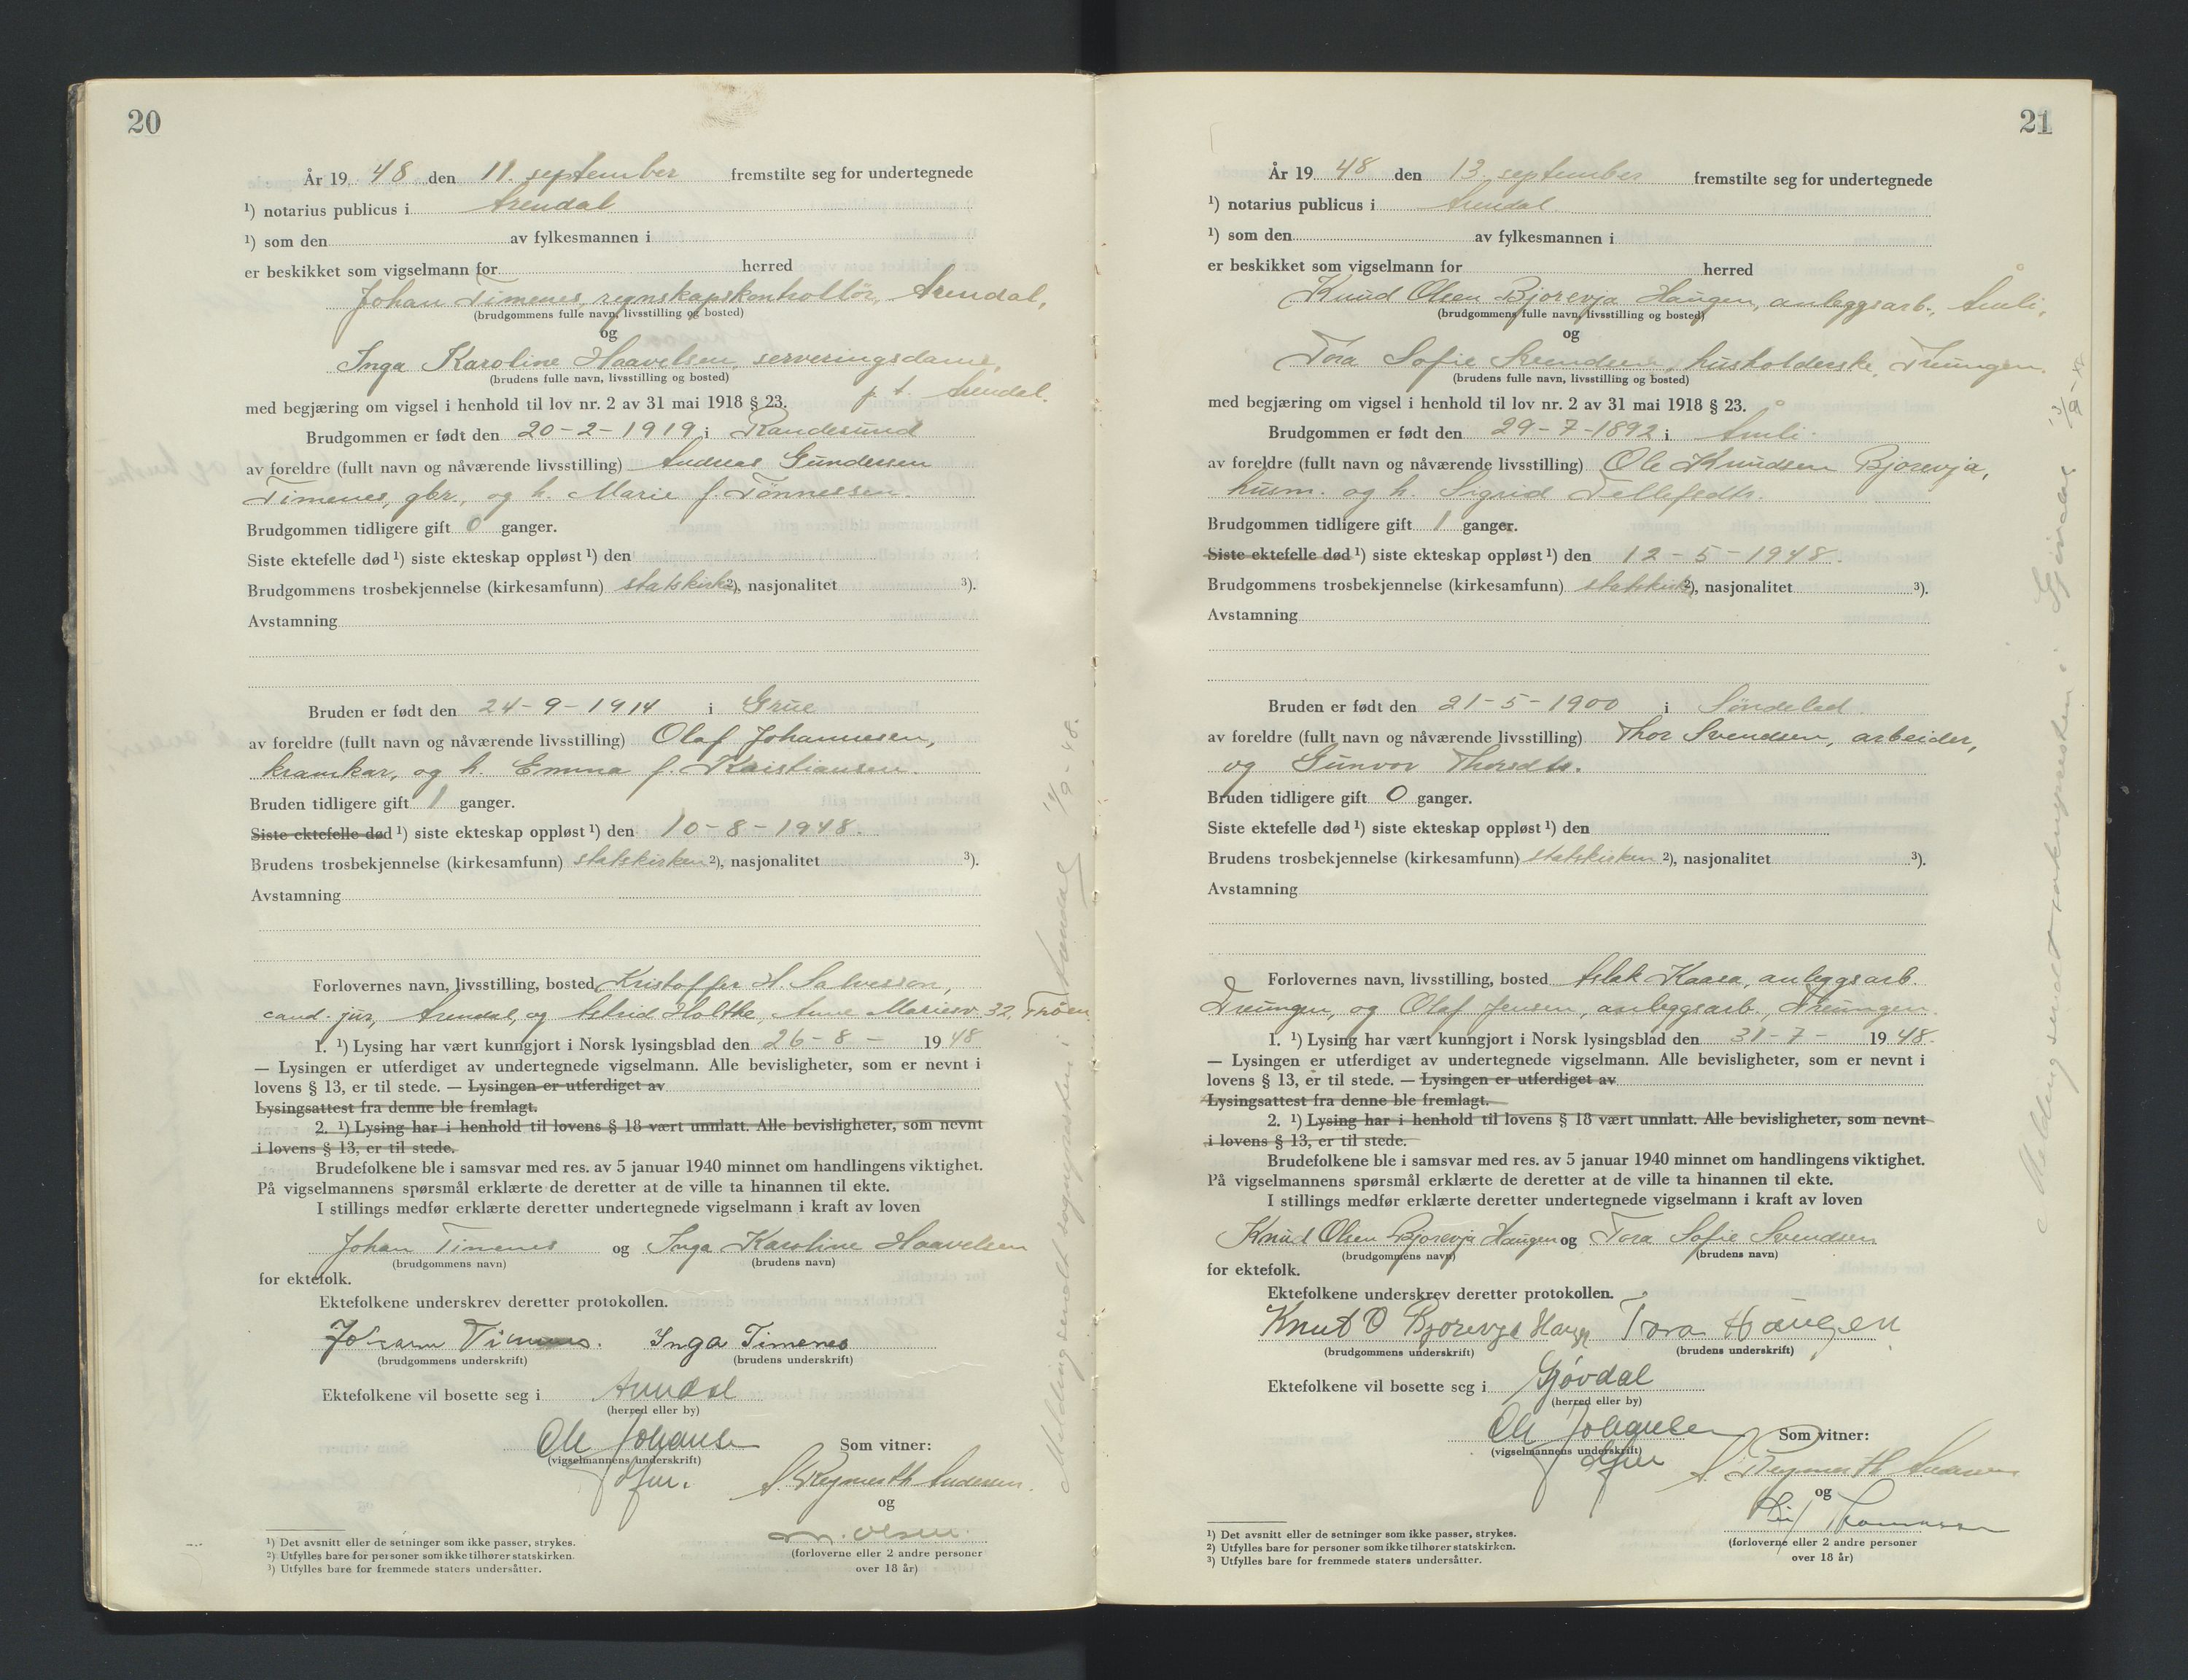 20
År 19 48 den 11. september fremstilte seg for undertegnede
¹) notarius publicus i Arendal
¹) som den av fylkesmannen i
er beskikket som vigselmann for herred
Johan Timenes, regnskapskontrollör, Arendal,
(brudgommens fulle navn, livsstilling og bosted)
og
Inga Karoline Haavelsen, serveringsdame,
(brudens fulle navn, livsstilling og bosted)
p. t. Arendal.
med begjæring om vigsel i henhold til lov nr. 2 av 31 mai 1918 § 23.
Brudgommen er født den 20-2-1919 i Randesund
av foreldre (fullt navn og nåværende livsstilling) Andreas Gundersen
Timenes, gbr., og h. Marie f. Tönnessen.
Brudgommen tidligere gift 0 ganger.
Siste ektefelle død ¹) siste ekteskap oppløst ¹) den
Brudgommens trosbekjennelse (kirkesamfunn) statskirk ²), nasjonalitet ³).
Avstamning
Bruden er født den 24-9-1914 i Grue
av foreldre (fullt navn og nåværende livsstilling) Olaf Johannesen,
kramkar, og h. Emma f. Kristiansen.
Bruden tidligere gift 1 ganger.
Siste ektefelle død ¹) siste ekteskap oppløst ¹) den 10-8-1948.
Brudens trosbekjennelse (kirkesamfunn) statskirken ²), nasjonalitet ³).
Avstamning
Forlovernes navn, livsstilling, bosted Kristoffer H. Salvesen,
cand. jur, Arendal, og Astrid Holtke, Anne Mariesv. 32,
1. ¹) Lysing har vært kunngjort i Norsk lysingsblad den 26-8- 1948
— Lysingen er utferdiget av undertegnede vigselmann. Alle bevisligheter, som er nevnt i
lovens § 13, er til stede. — Lysingen er utferdiget av
Lysingsattest fra denne ble fremlagt.
2. ¹) Lysing har i henhold til lovens § 18 vært unnlatt. Alle bevisligheter, som nevnt
i lovens § 13, er til stede.
Brudefolkene ble i samsvar med res. av 5 januar 1940 minnet om handlingens viktighet.
På vigselmannens spørsmål erklærte de deretter at de ville ta hinannen til ekte.
I stillings medfør erklærte deretter undertegnede vigselmann i kraft av loven
Johan Timenes og Inga Karoline Haavelsen
(brudgommens navn) (brudens navn)
for ektefolk.
Ektefolkene underskrev deretter protokollen.
Johan Timenes. Inga Timenes
(brudgommens underskrift) (brudens underskrift)
Ektefolkene vil bosette seg i Arendal
(herred eller by)
Ole Johansen Som vitner:
(vigselmannens underskrift)
og
M. Olsen.
(forloverne eller 2 andre personer
over 18 år)
¹) Det avsnitt eller de setninger som ikke passer, strykes.
²) Utfylles bare for personer som ikke tilhører statskirken.
³) Utfylles bare for fremmede staters undersåtter.
Melding sendt sognepresten i Arendal 14/9-48.
21
År 19 48 den 13. september fremstilte seg for undertegnede
¹) notarius publicus i Arendal
¹) som den av fylkesmannen i
er beskikket som vigselmann for herred
Knud Olsen Bjorevja Haugen, anleggsarb., Åmli,
(brudgommens fulle navn, livsstilling og bosted)
og
Tora Sofie Svendsen, husholderske, Treungen.
(brudens fulle navn, livsstilling og bosted)
med begjæring om vigsel i henhold til lov nr. 2 av 31 mai 1918 § 23.
Brudgommen er født den 29-7-1892 i Åmli.
av foreldre (fullt navn og nåværende livsstilling) Ole Knudsen Bjorevja,
husm. og h. Sigrid Tellefsdtr.
Brudgommen tidligere gift 1 ganger.
Siste ektefelle død ¹) siste ekteskap oppløst ¹) den 12-5-1948.
Brudgommens trosbekjennelse (kirkesamfunn) statskirk ²), nasjonalitet ³).
Avstamning
Bruden er født den 21-5-1900 i Söndeled.
av foreldre (fullt navn og nåværende livsstilling) Thor Svendsen, arbeider,
og Gunvor Thorsdtr.
Bruden tidligere gift 0 ganger.
Siste ektefelle død ¹) siste ekteskap oppløst ¹) den
Brudens trosbekjennelse (kirkesamfunn) statskirken ²), nasjonalitet ³).
Avstamning
Forlovernes navn, livsstilling, bosted Aslak Kaasa, anleggsarb.
Treungen, og Olaf Jensen, anleggsarb., Treungen.
1. ¹) Lysing har vært kunngjort i Norsk lysingsblad den 31-7- 1948.
— Lysingen er utferdiget av undertegnede vigselmann. Alle bevisligheter, som er nevnt i
lovens § 13, er til stede. — Lysingen er utferdiget av
Lysingsattest fra denne ble fremlagt.
2. ¹) Lysing har i henhold til lovens § 18 vært unnlatt. Alle bevisligheter, som nevnt
i lovens § 13, er til stede.
Brudefolkene ble i samsvar med res. av 5 januar 1940 minnet om handlingens viktighet.
På vigselmannens spørsmål erklærte de deretter at de ville ta hinannen til ekte.
I stillings medfør erklærte deretter undertegnede vigselmann i kraft av loven
Knud Olsen Bjorevja Haugen og Tora Sofie Svendsen
(brudgommens navn) (brudens navn)
for ektefolk.
Ektefolkene underskrev deretter protokollen.
Knut O Bjorevja Haugen Tora Haugen
(brudgommens underskrift) (brudens underskrift)
Ektefolkene vil bosette seg i Gjövdal
(herred eller by)
Ole Johansen Som vitner:
(vigselmannens underskrift)
og
(forloverne eller 2 andre personer
over 18 år)
¹) Det avsnitt eller de setninger som ikke passer, strykes.
²) Utfylles bare for personer som ikke tilhører statskirken.
³) Utfylles bare for fremmede staters undersåtter.
Melding sendt soknepresten i Gjövdal